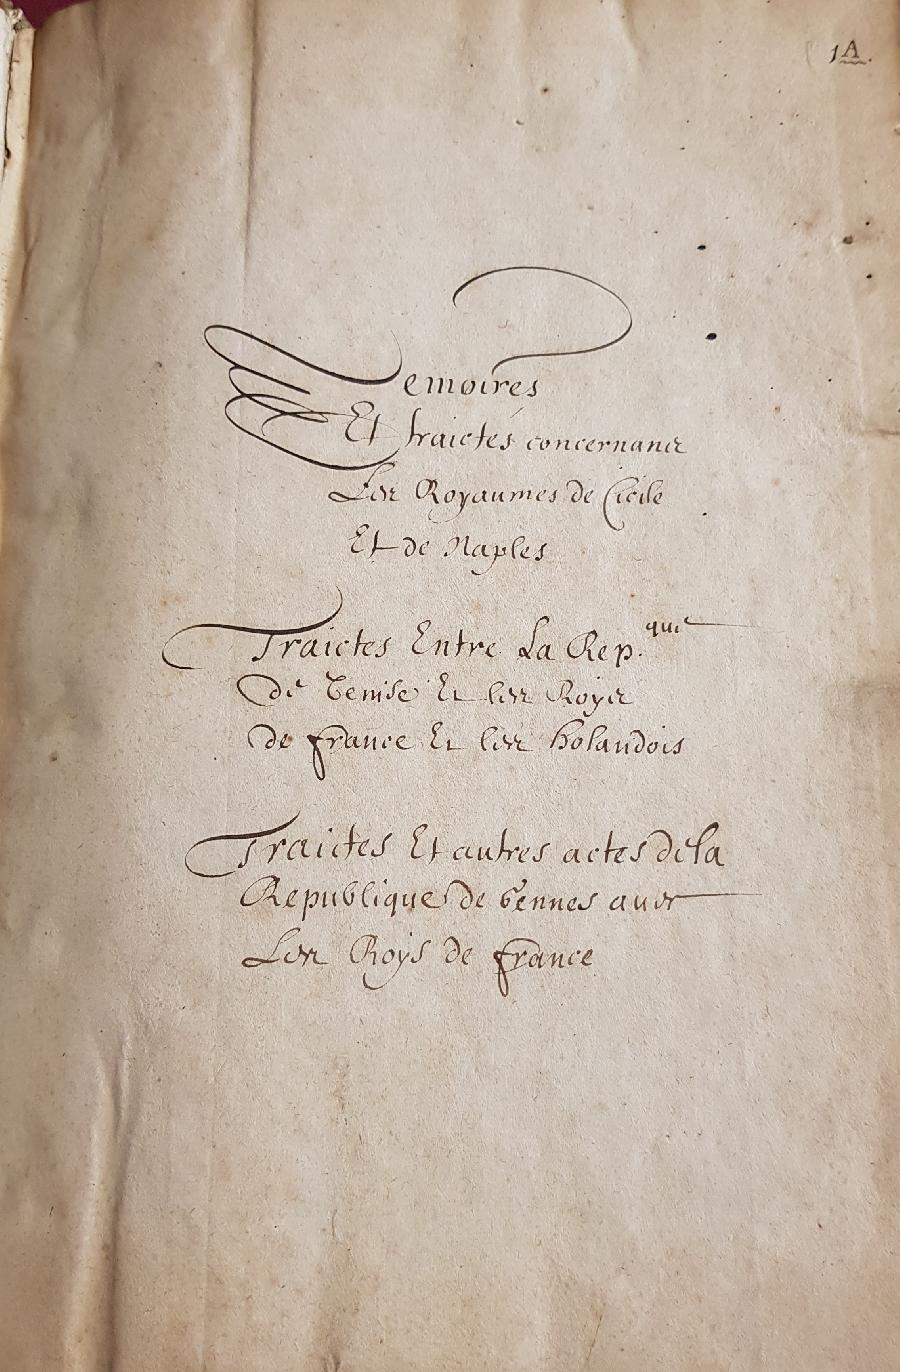 1A.
Memoires
Et traictés concernans
Les Royaumes de Cicile
Et de Naples
Traictes Entre La Rep.que
de Venise Et les Roys
de france Et les holandois
Traictes Et autres actes de la
Republique de Gennes avec
Les Roys de france